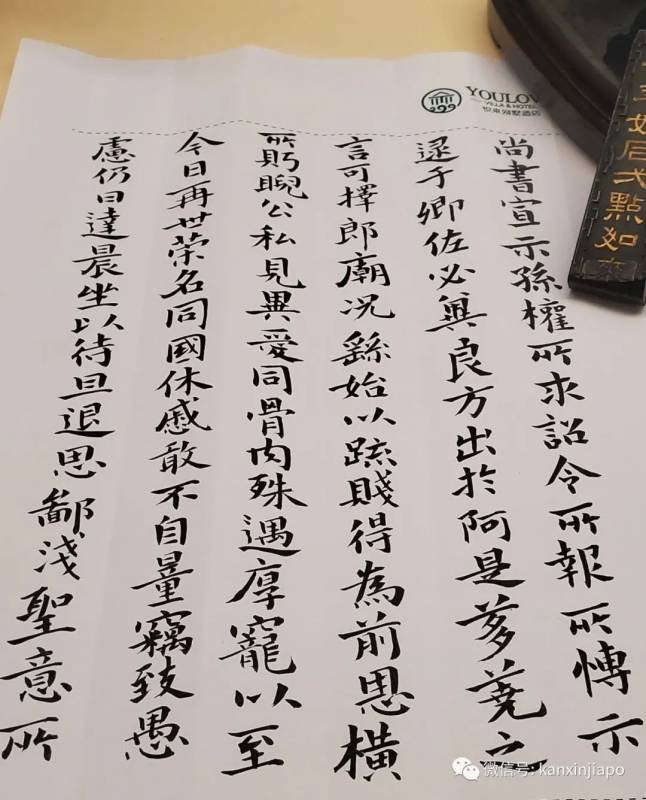 尚書宣示孫權所求詔令所報所愽示
逮于卿佐必冀良方出於阿是芻蕘之
言可擇郎廟况繇始以疏賤得為前恩橫
所䀢睨公私見異愛同骨肉殊遇厚寵以至
今日再世榮名同國休慼敢不自量竊致愚
慮仍日達晨坐以待旦退思鄙淺聖意所
YOULOV
VILLA & HOTEL
悦來别墅酒店
如后弋點如
微信号: kanxinjiapo